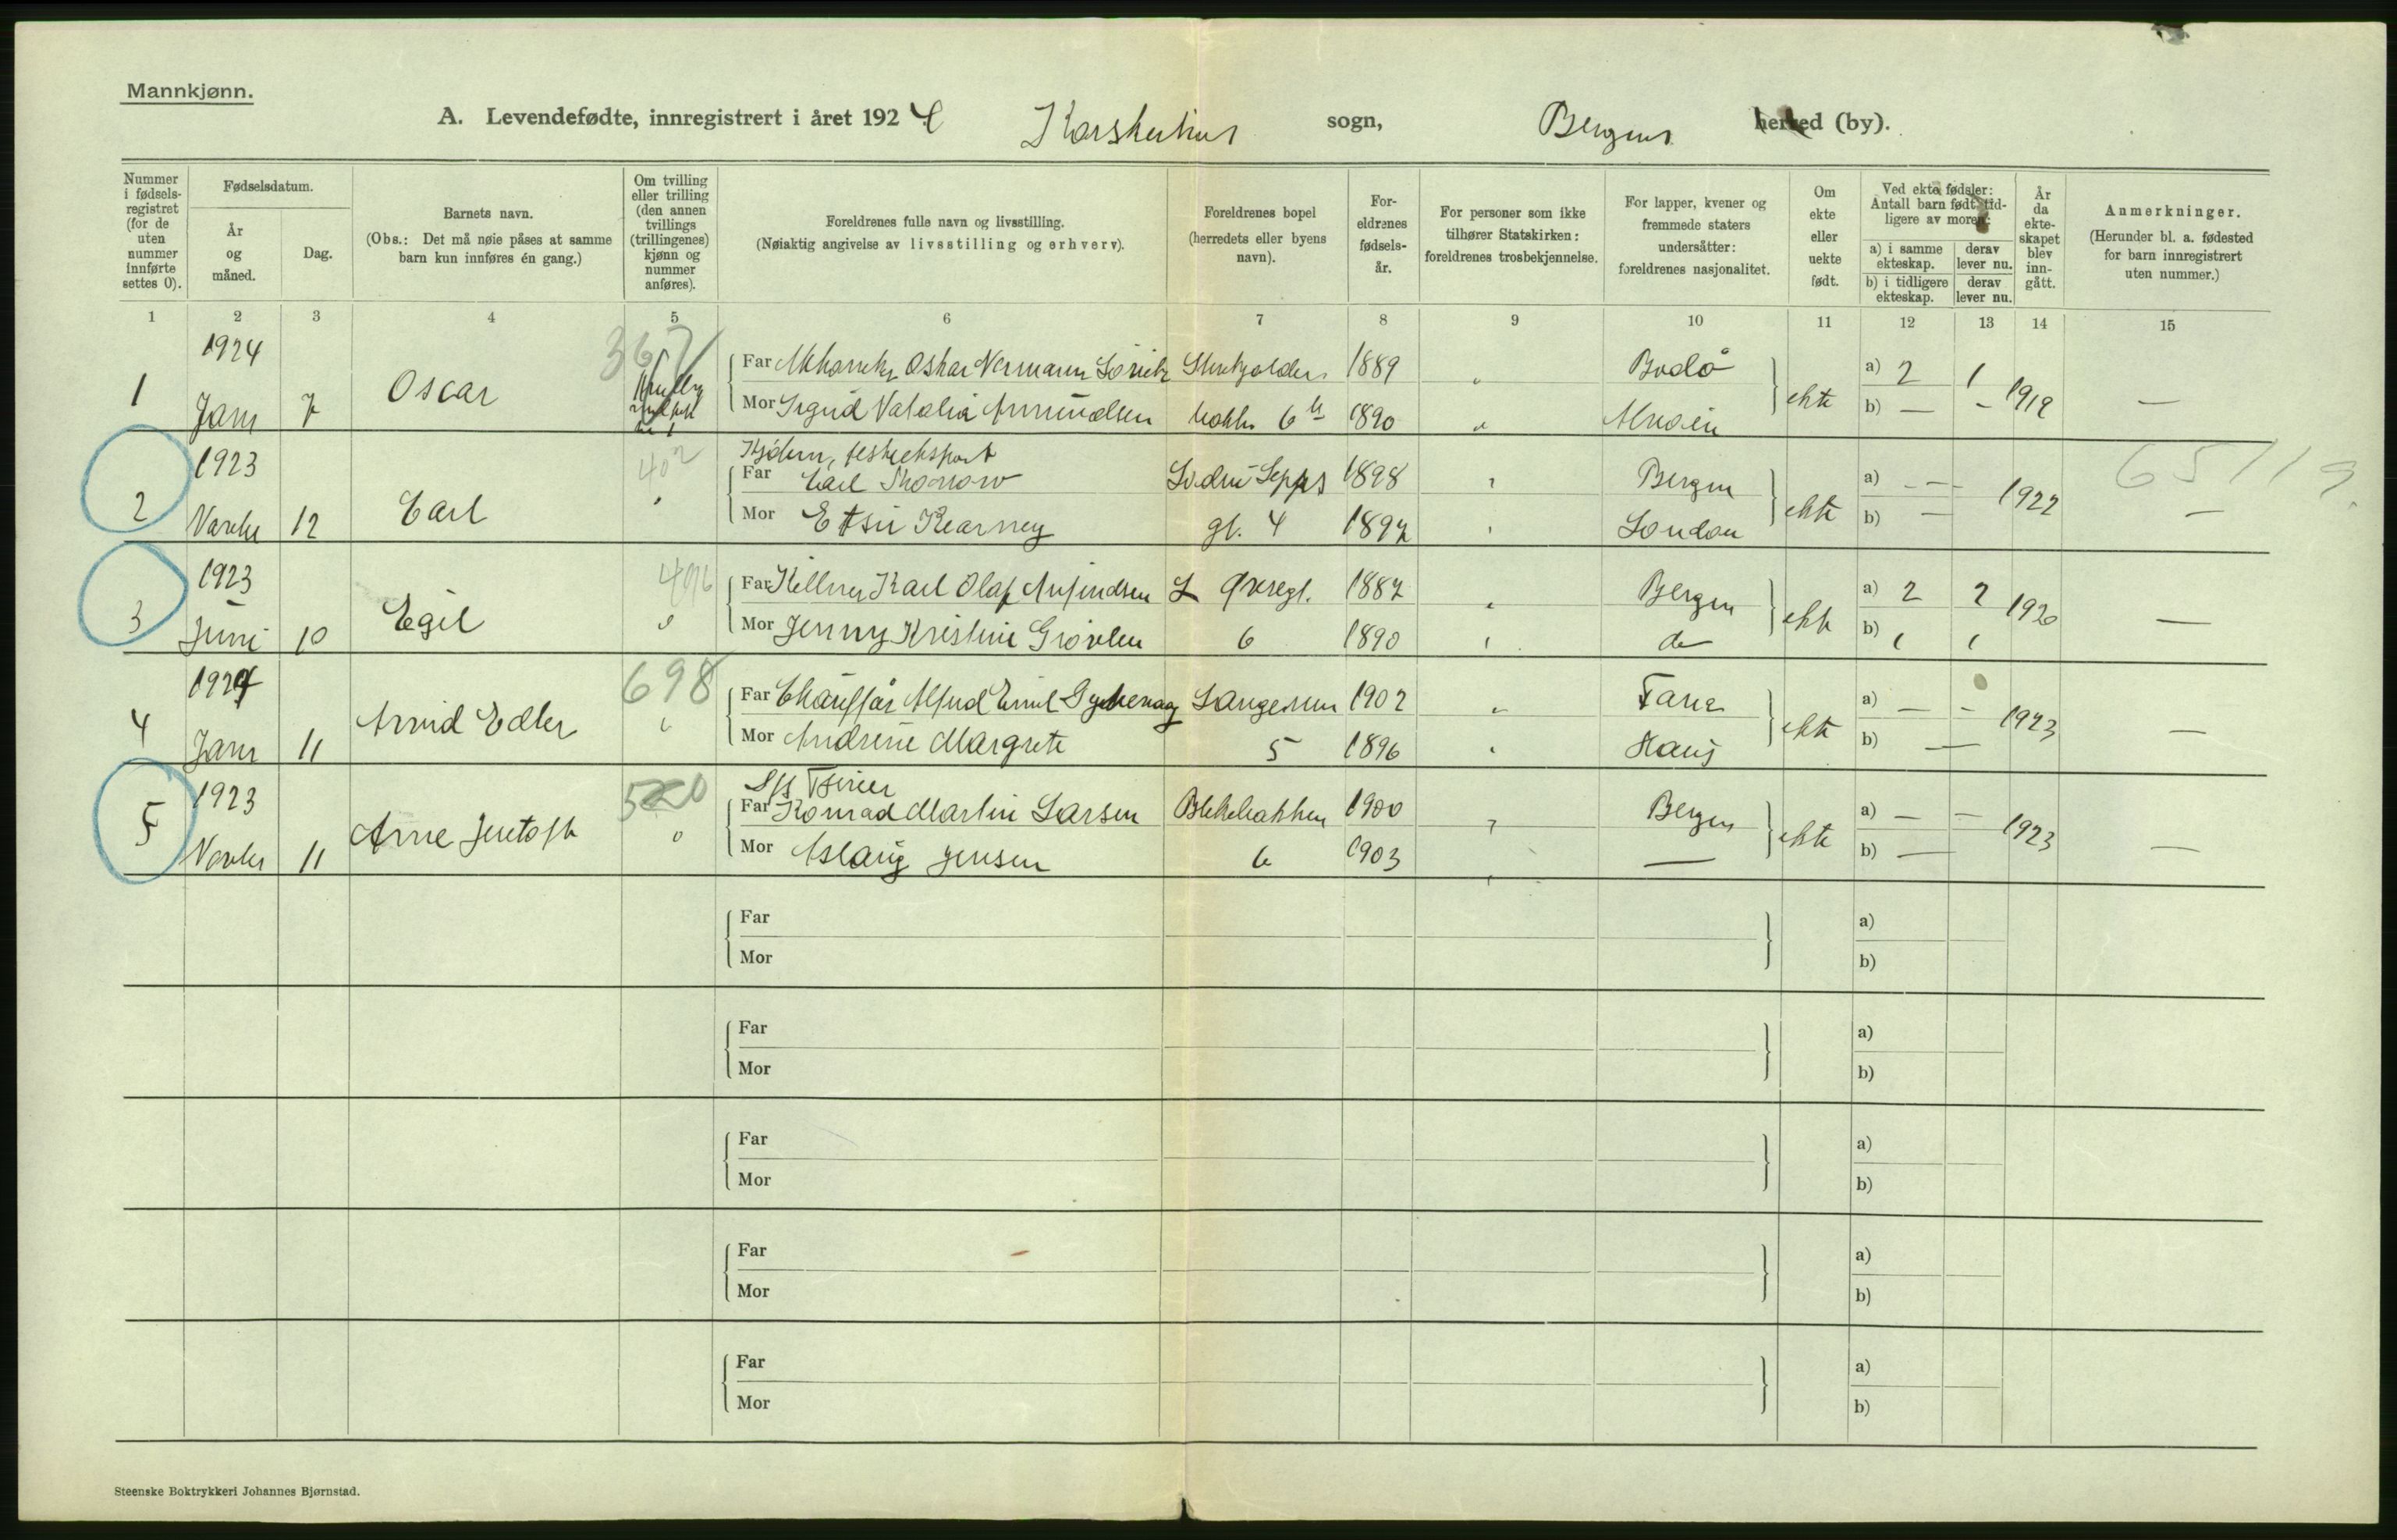 Mannkjønn.
A. Levendefødte, innregistrert i året 1924 Korskirkens sogn, Bergens herred (by).
Nummer i fødsels-registret (for de uten nummer innførte settes 0).
Fødselsdatum.
År og måned.
Dag.
Barnets navn.
(Obs.: Det må nøie påses at samme barn kun innføres én gang.)
Om tvilling eller trilling (den annen tvillings (trillingenes) kjønn og nummer anføres).
Foreldrenes fulle navn og livsstilling.
(Nøiaktig angivelse av livsstilling og erhverv).
Foreldrenes bopel (herredets eller byens navn).
For-eldrenes fødsels-år.
For personer som ikke tilhører Statskirken: foreldrenes trosbekjennelse.
For lapper, kvener og fremmede staters undersåtter: foreldrenes nasjonalitet.
Om ekte eller uekte født.
Ved ekte fødsler: Antall barn født tid-ligere av moren:
a) i samme ekteskap.
derav lever nu.
b) i tidligere ekteskap.
derav lever nu.
År da ekte-skapet blev inn-gått.
Anmerkninger.
(Herunder bl. a. fødested for barn innregistrert uten nummer.)
1 2 3 4 5 6 7 8 9 10 11 12 13 14 15
1924 367 Far Oskar 1889 " Bodö a) 2 1
1 Janr 7 Oscar ekte 1919 —
Mor Sigrid Natalia 6 1890 " b) — -
1923 402 Far Carl 1898 Bergen a) - — -
2 12 Carl ekte 1922 — 65119
Mor Kearney gt. 4 1897 London b) —
1923 496 Far Kellner Karl Olaf L Øvregt. 1887 " Bergen a) 2 2
3 Juni 10 Egil ekte 1920 —
Mor Jenny Kristine 6 1890 do b)
1924 698 Far Chauffør Alfred Emil 1902 " Fana a) — -
4 Janr 11 Arvid ekte 1923 —
Mor Andrine Margrete 5 1896 Haus b) —
1923 520 Far Konrad Martin Larsen Blekebakken 1900 " Bergen a) — —
5 11 Arne ekte 1923 —
Mor Aslaug Jensen 6 1903 — b) —
Far a)
Mor b)
Far a)
Mor b)
Far a)
Mor b)
Far a)
Mor b)
Far a)
Mor b)
Steenske Boktrykkeri Johannes Bjørnstad.